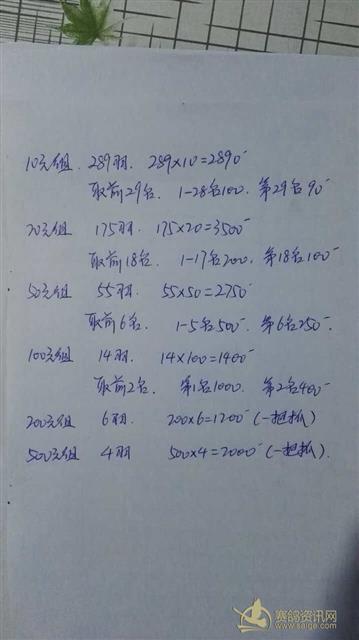 10元组. 289羽. 289×10=2890
取前29名. 1-28名100. 第29名90
20元组 175羽. 175×20=3500
取前18名. 1-17名200. 第18名100
50元组 55羽. 55×50=2750
取前6名. 1-5名500. 第6名250.
100元组 14羽. 14×100=1400
取前2名. 第1名1000. 第2名400
200元组 6羽. 200×6=1200 (一把抓)
500元组 4羽 500×4=2000 (一把抓).
赛鸽资讯网
www.saige.com